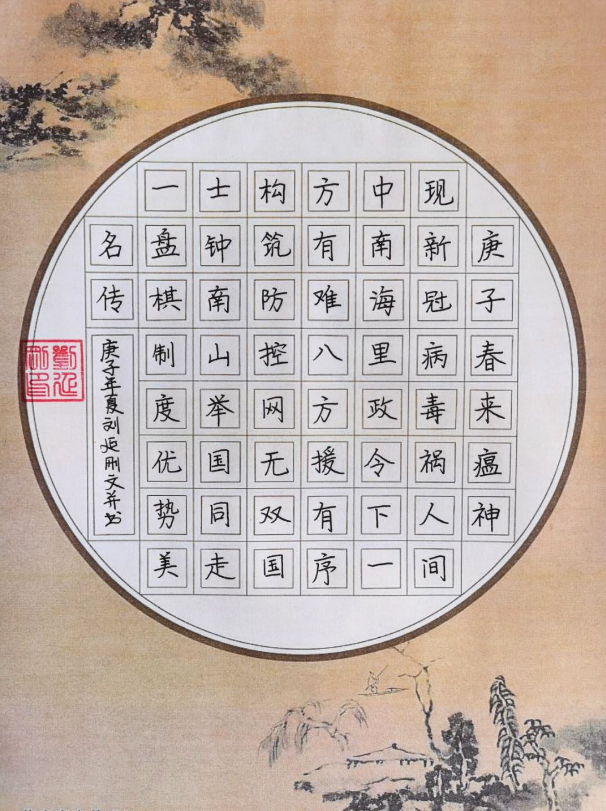 庚子春来瘟神
现新冠病毒祸人间
中南海里政令下一
方有难八方援有序
构筑防控网无双国
士钟南山举国同走
一盘棋制度优势美
名传
庚子年夏刘延刚文并书
劉延剛印